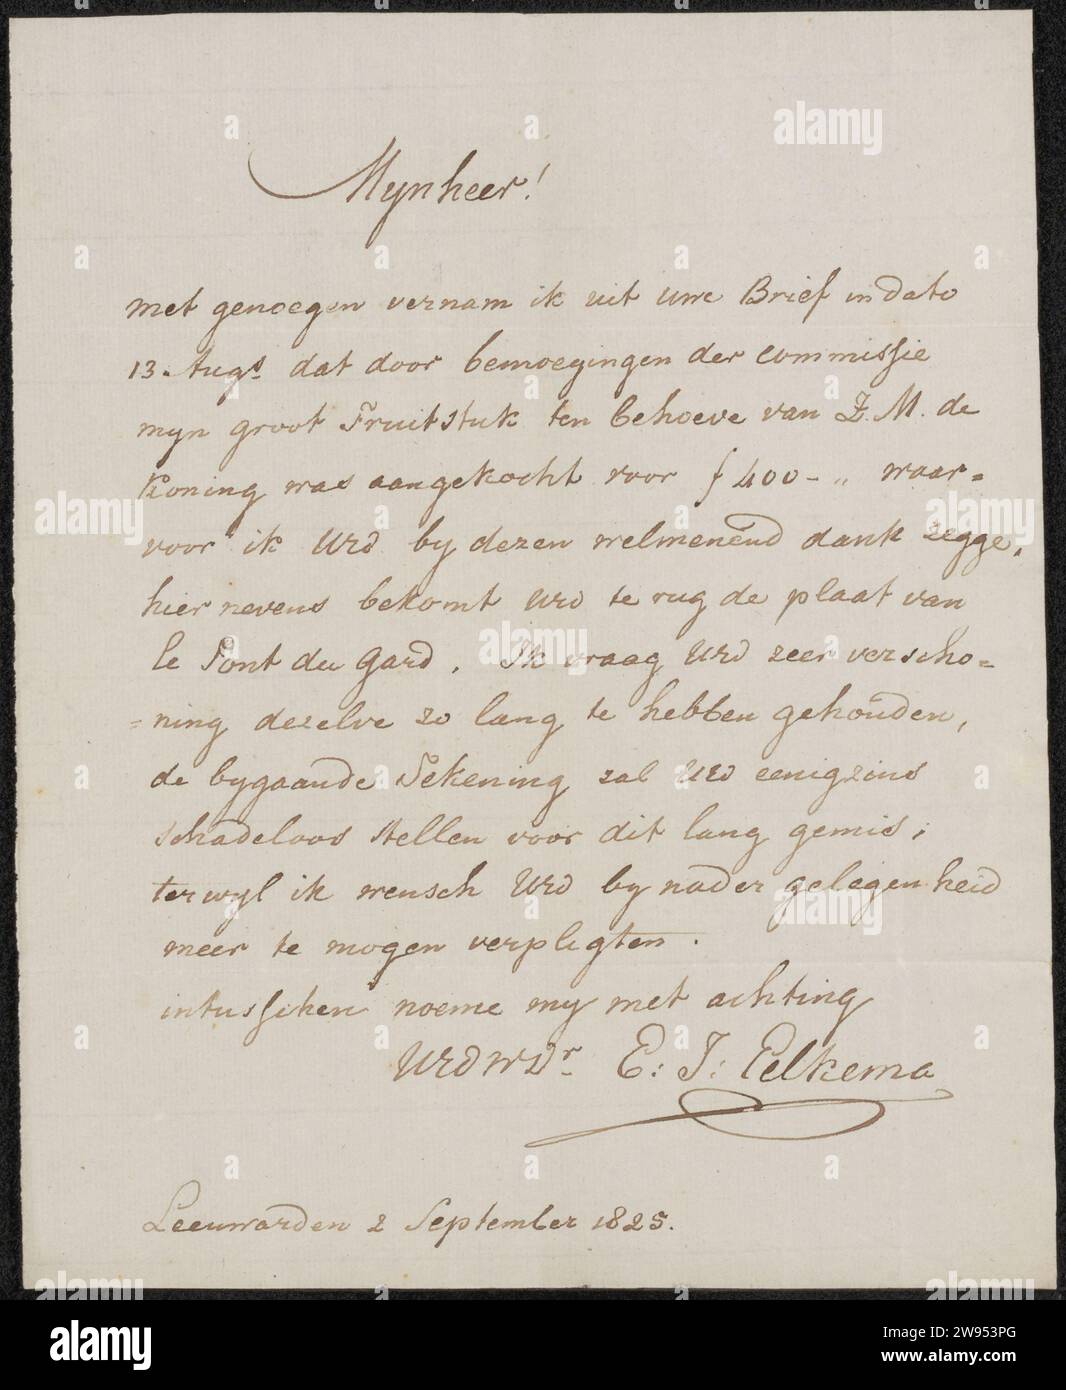 Mynheer!
met genoegen vernam ik uit uwe Brief in dato
13. Augs. dat door bemoegingen der commissie
myn groot Fruitstuk ten behoeve van Z. M. de
Koning was aangekocht voor f 400 - „ waar=
voor ik UEd by dezen welmenend dank zegge,
hier nevens bekomt UEd te rug de plaat van
le Pont du Gard. Ik vraag UEd zeer verscho=
=ning dezelve zo lang te hebben gehouden,
de bygaande Tekening zal UEd eenigzins
schadeloos stellen voor dit lang gemis;
terwyl ik wensch UEd by nader gelegenheid
meer te mogen verpligten.
intusschen noeme my met achting
UEdWDr. E: J: Eelkema
Leeuwarden 2 September 1825.
alamy
Image ID: 2W953PG
www.alamy.com